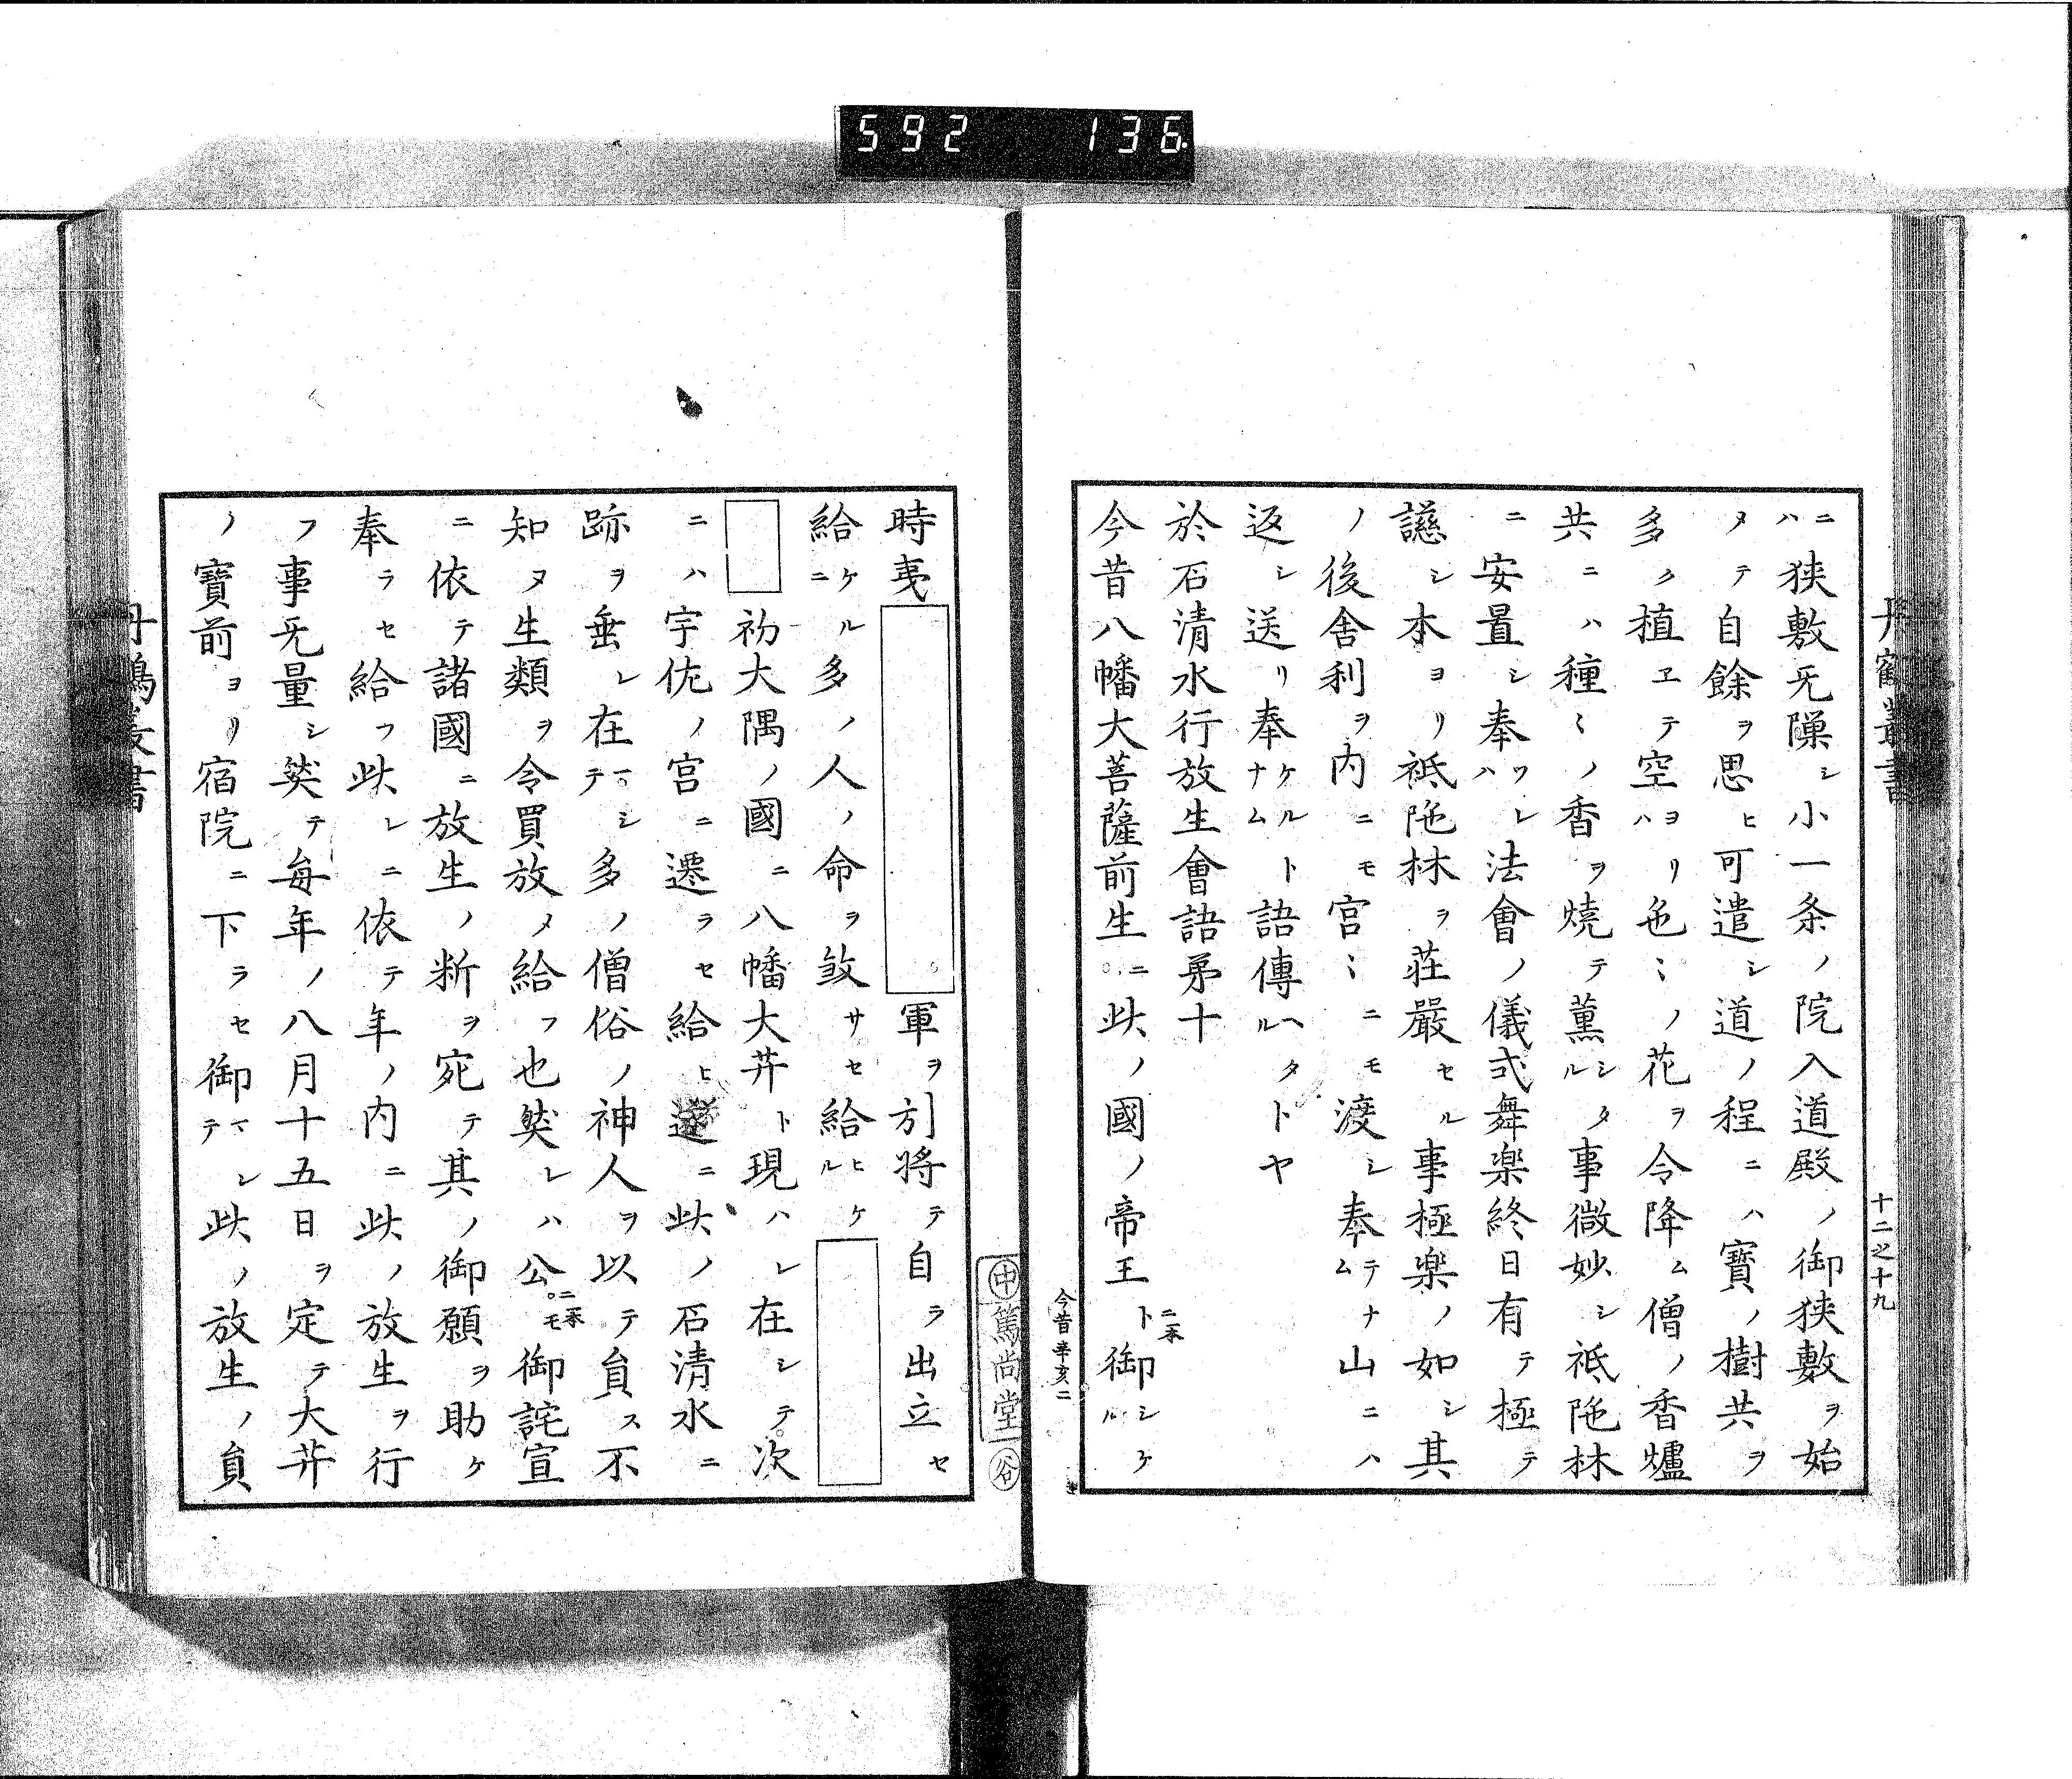 592 136
丹鶴叢書
十二之十九
ニハ狭敷无隟シ小一条ノ院入道殿ノ御狭敷ヲ始
タテ自餘ヲ思ヒ可遣シ道ノ程ニハ寳ノ樹共ヲ
多ク植ヱテ空ヨリハ色〻ノ花ヲ令降ム僧ノ香爐
共ニハ種〻ノ香ヲ燒テ薰シタル事微妙シ祇陁林
ニ安置シ奉ツレハ法會ノ儀式舞樂終日有テ極テ
讌シ本ヨリ祇陁林ヲ荘嚴セル事極樂ノ如シ其
ノ後舎利ヲ内ニモ宮〻ニモ渡シ奉テナム山ニハ
返シ送リ奉ケルトナム語傳ヘタルトヤ
於石清水行放生會語第十
今昔八幡大菩薩前生ニ此ノ國ノ帝王ト二本御シケル
今昔辛亥二
時夷 軍ヲ引將テ自ラ出立セ
給ケルニ多ノ人ノ命ヲ敓サセ給ヒケル
初大隅ノ國ニ八幡大䒑ト現ハレ在シテ次
ニハ宇佐ノ宮ニ遷ラセ給ヒ遂ニ此ノ石清水ニ
跡ヲ垂レ在マシテ多ノ僧俗ノ神人ヲ以テ員ス不
知ヌ生類ヲ令買放メ給フ也然レハ公ニ本モ御詫宣
ニ依テ諸國ニ放生ノ析ヲ宛テ其ノ御願ヲ助ケ
奉ラセ給フ此レニ依テ年ノ内ニ此ノ放生ヲ行
フ事无量シ然テ毎年ノ八月十五日ヲ定テ大䒑
ノ寳前ヨリ宿院ニ下ラセ御マシテ此ノ放生ノ員
中 篤尚堂 谷
丹鶴叢書